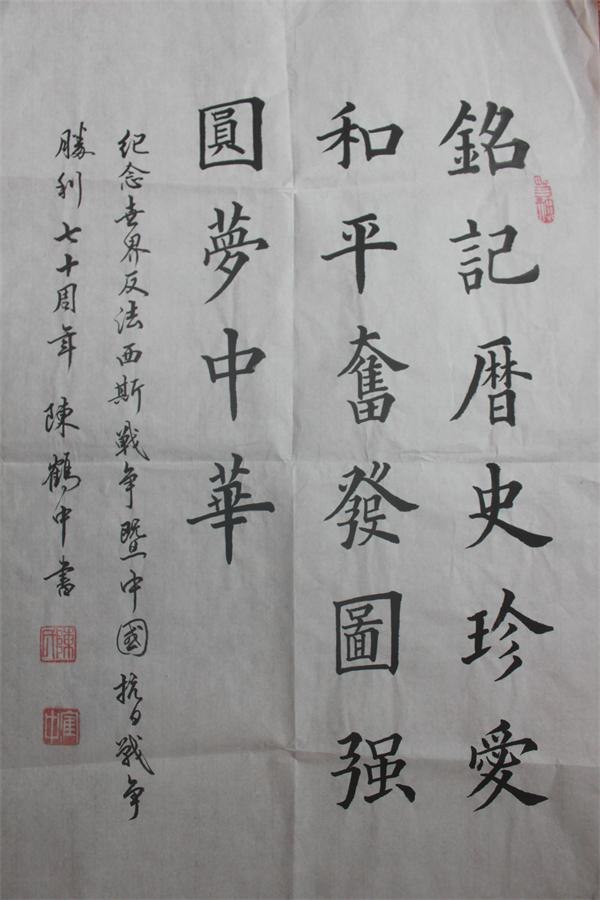 銘記曆史珍愛
和平奮發圖强
圓夢中華
紀念世界反法西斯戰争暨中國抗日戰争
勝利七十周年 陳鶴中書